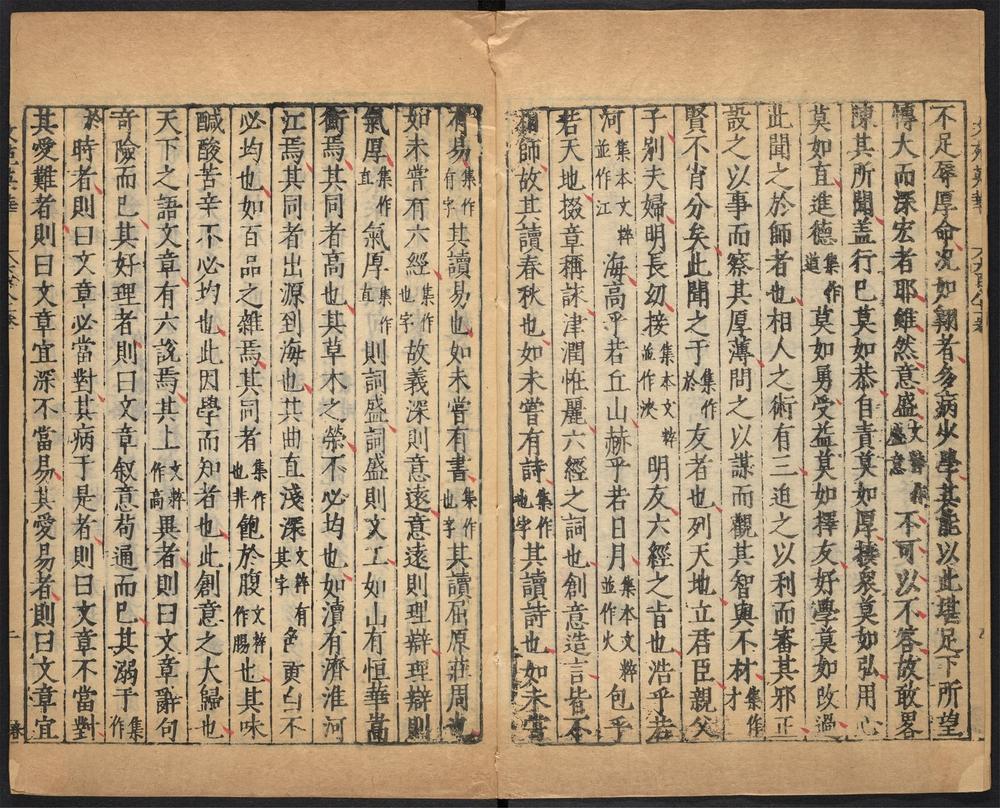 不足辱厚命况如翱者多病少學其能以此堪足下所望
博大而深宏者耶雖然意盛文粹作盛意不可以不答故敢畧
陳其所聞盖行巳莫如恭自責莫如厚接衆莫如弘用心
莫如直進德集作道莫如勇受益莫如擇友好學莫如改過
此聞之於師者也相人之術有三迫之以利而審其邪正
設之以事而察其厚薄問之以謀而觀其智與不材集作才
賢不肖分矣此聞之于集作於友者也列天地立君臣親父
子别夫婦明長幼接集本文粹並作浹明友六經之旨也浩乎若
河集本文粹並作江海高乎若丘山赫乎若日月集本文粹並作火包乎
若天地掇章稱詠津潤恠麗六經之詞也創意造言皆不
相師故其讀春秋也如未嘗有詩集作也字其讀詩也如未嘗
有易集作有字其讀易也如未嘗有書集作也字其讀屈原莊周也
如未嘗有六經集作也字故義深則意遠意遠則理辯理辯則
氣厚集作直氣厚集作直則詞盛詞盛則文工如山有恒華嵩
衡焉其同者高也其草木之榮不必均也如瀆有濟淮河
江焉其同者出源到海也其曲直淺深文粹有其字色黄白不
必均也如百品之雜焉其同者集作也非飽於腹文粹作腸也其味
鹹酸苦辛不必均也此因學而知者也此創意之大歸也
天下之語文章有六說焉其上文粹作高異者則曰文章辭句
奇險而巳其好理者則曰文章叙意苟通而巳其溺于集作
於時者則曰文章必當對其病于是者則曰文章不當對
其愛難者則曰文章宜深不當易其愛易者則曰文章宜